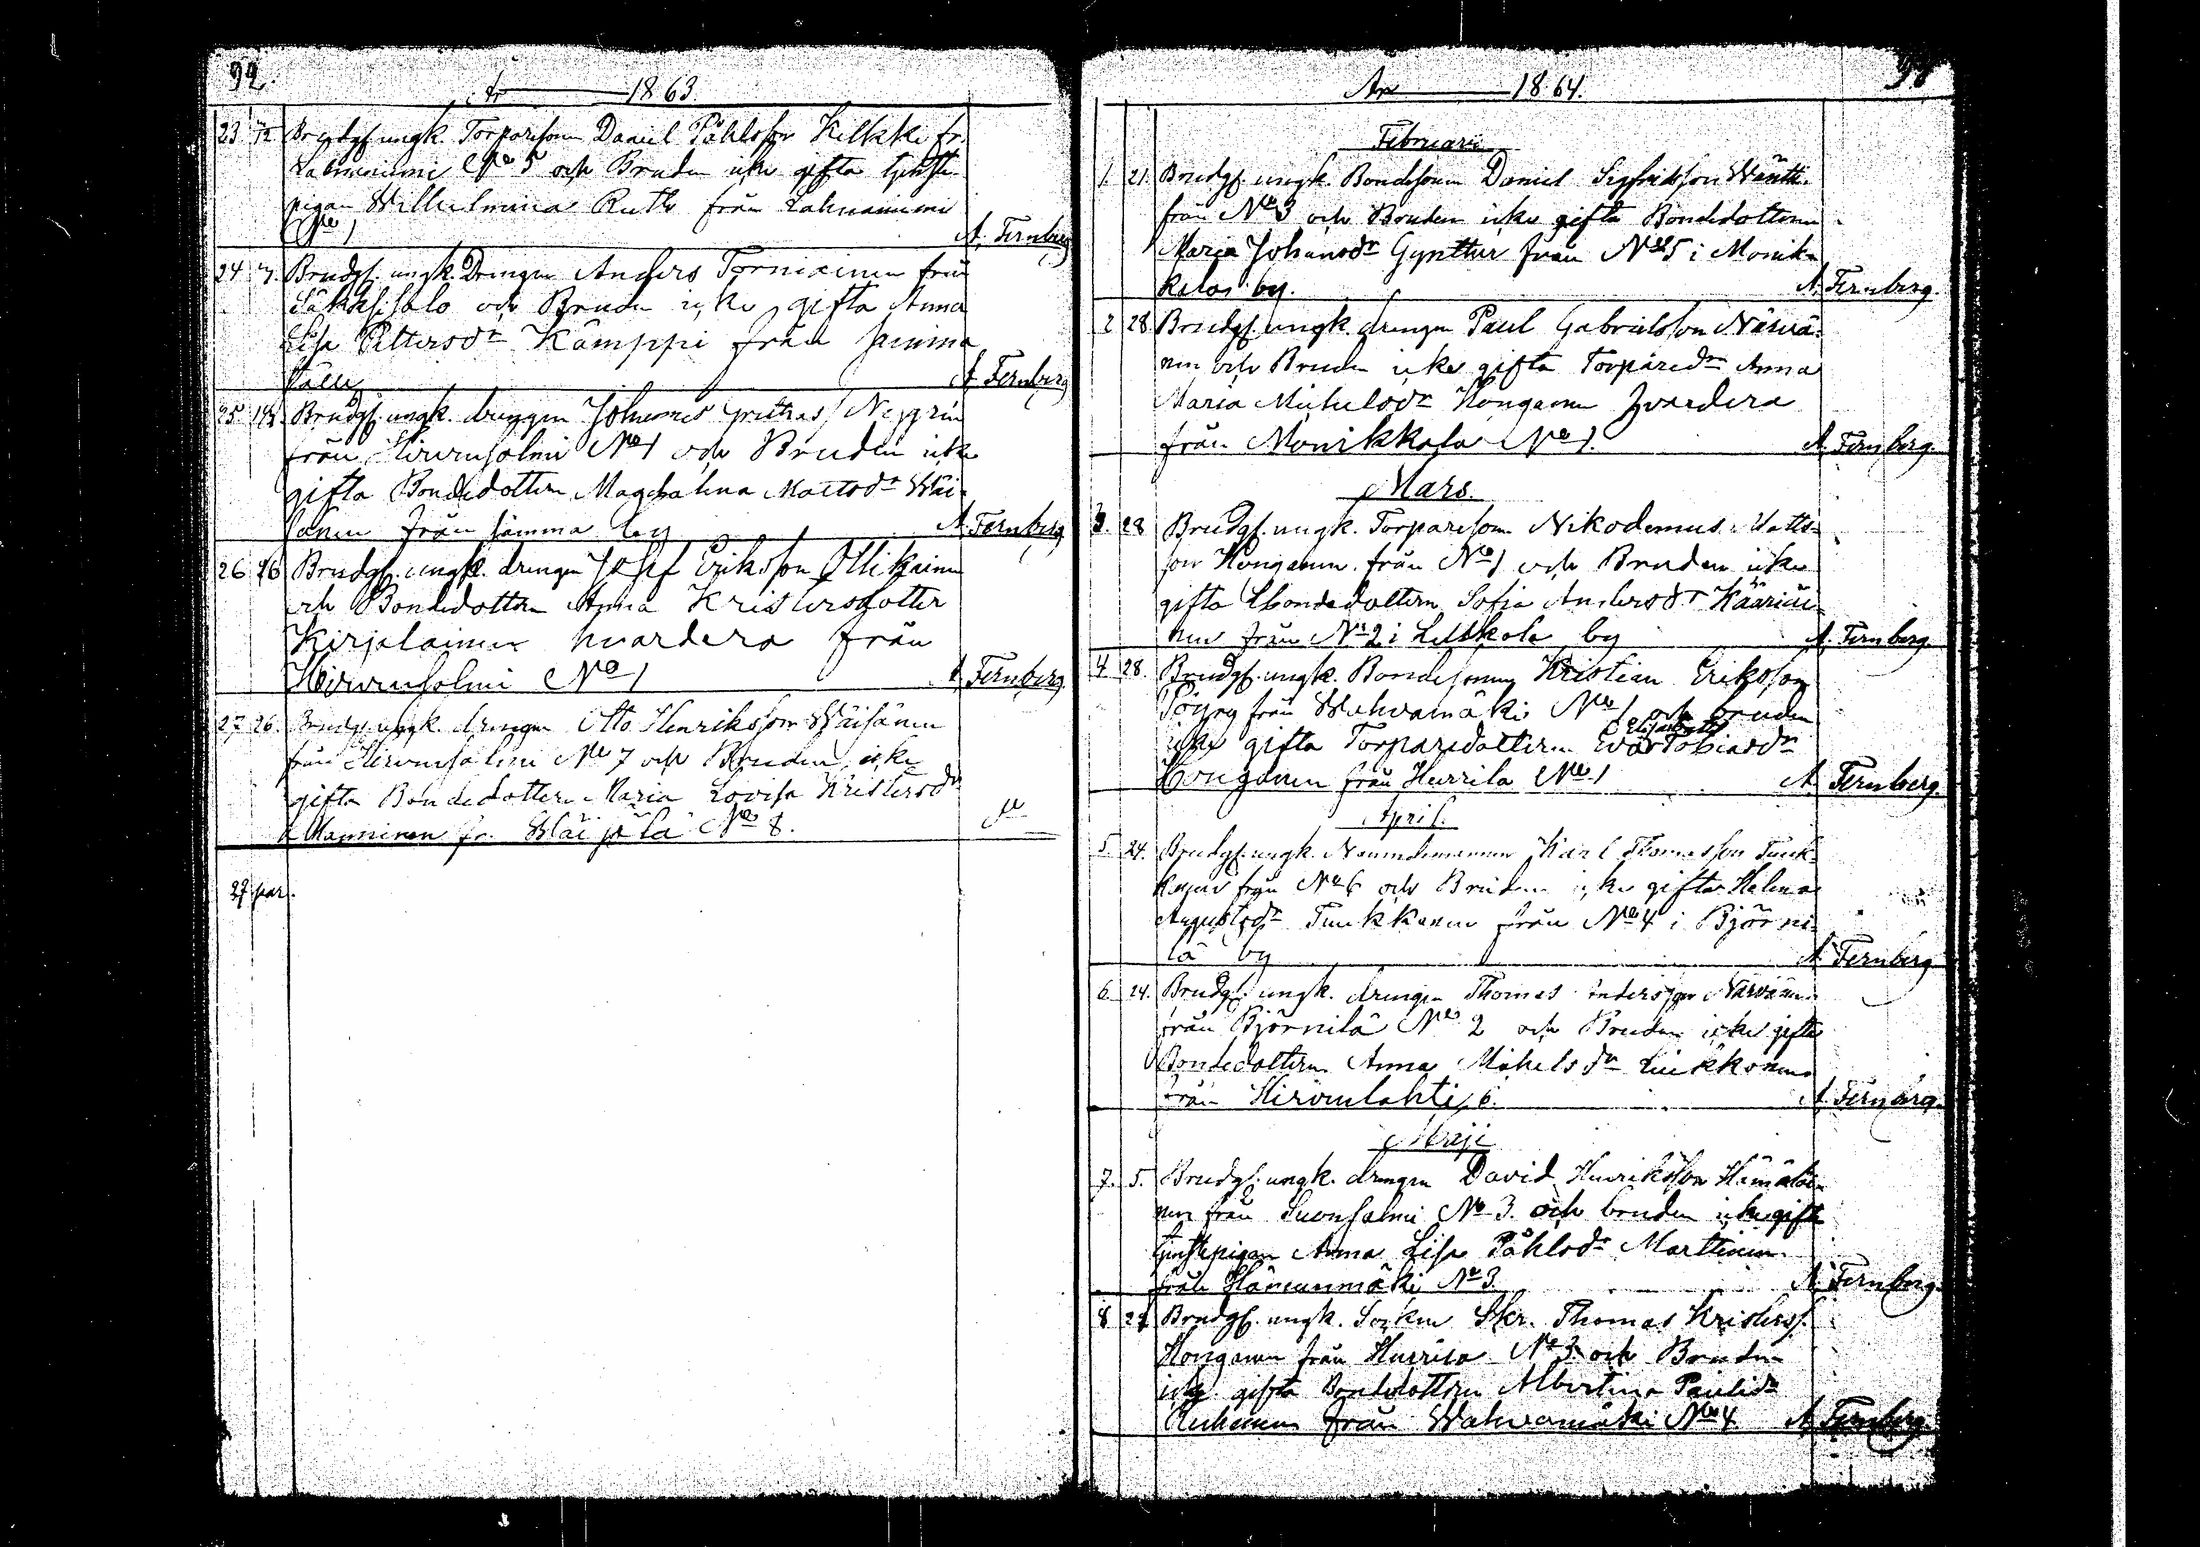 92.
År 1863.
23 Brudg. ungk. Torparesonen Daniel Påhlsson Kilkki fr.
Lahnaniemi No 5 och Bruden icke gifta tjenste-
pigan Wilhelmina Ruth från Lahnaniemi
No 1
A. Fernberg
24 7. Brudg. ungk. Drengen Anders Torniainen från
Säkkisalo och Bruden icke gifta Anna
Lisa Pettersdr Kämppi från samma
ställe
A. Fernberg
25 Brudg. ungk. drengen Johannes
från Hirvensalmi No 1 och Bruden icke
gifta Bondedottern Magdalena Mattsdr Wäi-
sänen från samma by
A. Fernberg
26 26 Brudg. ungk. drengen Josef Eriksson Ollikainen
och Bondedottern Anna Kristersdotter
Kirjalainen hvardera från
Hirvensalmi No 1
A. Fernberg.
27 26. Brudg. ungk. drengen Otto Henriksson Wäisänen
från Hirvensalmi No 7 och Bruden icke
gifta Bondedottern Maria Lovisa Kristersdr
Manninen fr. Wäisälä No 8.
27 par.
År 1864.
Februarii
1. 21. Brudg. ungk. Bondesonen Daniel Sigfridsson
från No 3 och Bruden icke gifta Bondedottern
Maria Johansdr Gynttur från No 5 i Monik-
kala by.
A. Fernberg.
2 28. Brudg. ungk. drengen Paul Gabrielsson Närvä-
nen och Bruden icke gifta Torparedr Anna
Maria Michelsdr Honganen hvardera
från Monikkala No 1.
A. Fernberg.
Mars.
3. 28 Brudg. ungk. Torparesonen Nikodemus Matts-
son Honganen från No 1 och Bruden icke
gifta Bondedottern Sofia Andersdr Kääriäi-
nen från No 2 i Leskola by
A. Fernberg.
4. 28. Brudg. ungk. Bondesonen Kristian Eriksson
Pöyry från Wahvamäki No 1 och bruden
Elisabeth
icke gifta Torparedottern Eva Tobiasdr
Honganen från Hurrila No 1
A. Fernberg.
April.
5. 24. Brudg. ungk. Karl Thomasson Tuuk-
kanen från No 6 och Bruden icke gifta Helena
Augustsdr Tuukkanen från No 4 i Björni-
lä by
A. Fernberg
6. 24. Brudg. ungk. drengen Thomas Andersson Närvänen
från Björnilä No 2 och Bruden icke gifta
Bondedottern Anna Mikelsdr Liukkonen
från Hirvenlahti 6.
A. Fernberg.
Maji
7. 5. Brudg. ungk. drengen David Henriksson Hämäläi-
nen från Suonsalmi No 3. och bruden icke gifta
tjenstepigan Anna Lisa Påhlsdr Marttinen
från Hämeenmäki No 3.
A. Fernberg.
8 29 Brudg. ungk. Socken Skr. Thomas Kristerss.
Honganen från Hurrila No 3 och Bruden
icke gifta Bondedottern Albertina Paulsdr
från Wahvamäki No 4
A. Fernberg.